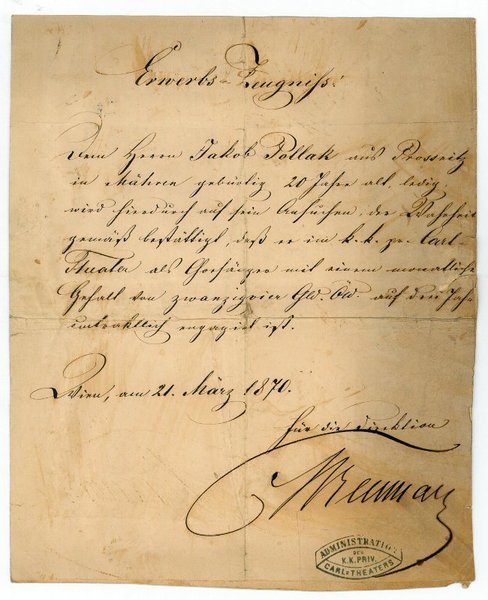 Erwerbs-Zeugniss.
Dem Herrn Jakob Pollak aus Prossnitz
in Mähren gebürtig 20 Jahre alt, ledig,
wird hierdurch auf sein Ansuchen, der Wahrheit
gemäß bestättigt, daß er im k. k. pr. Carl-
Theater als Chorsänger mit einem monatlichen
Gehalt von zwanzigvier Gld. ÖW. auf drei Jahre
kontraktlich engagiert ist.
Wien, am 21. März 1870.
Für die Direktion
ADMINISTRATION
DES
K.K. PRIV.
CARL-THEATERS